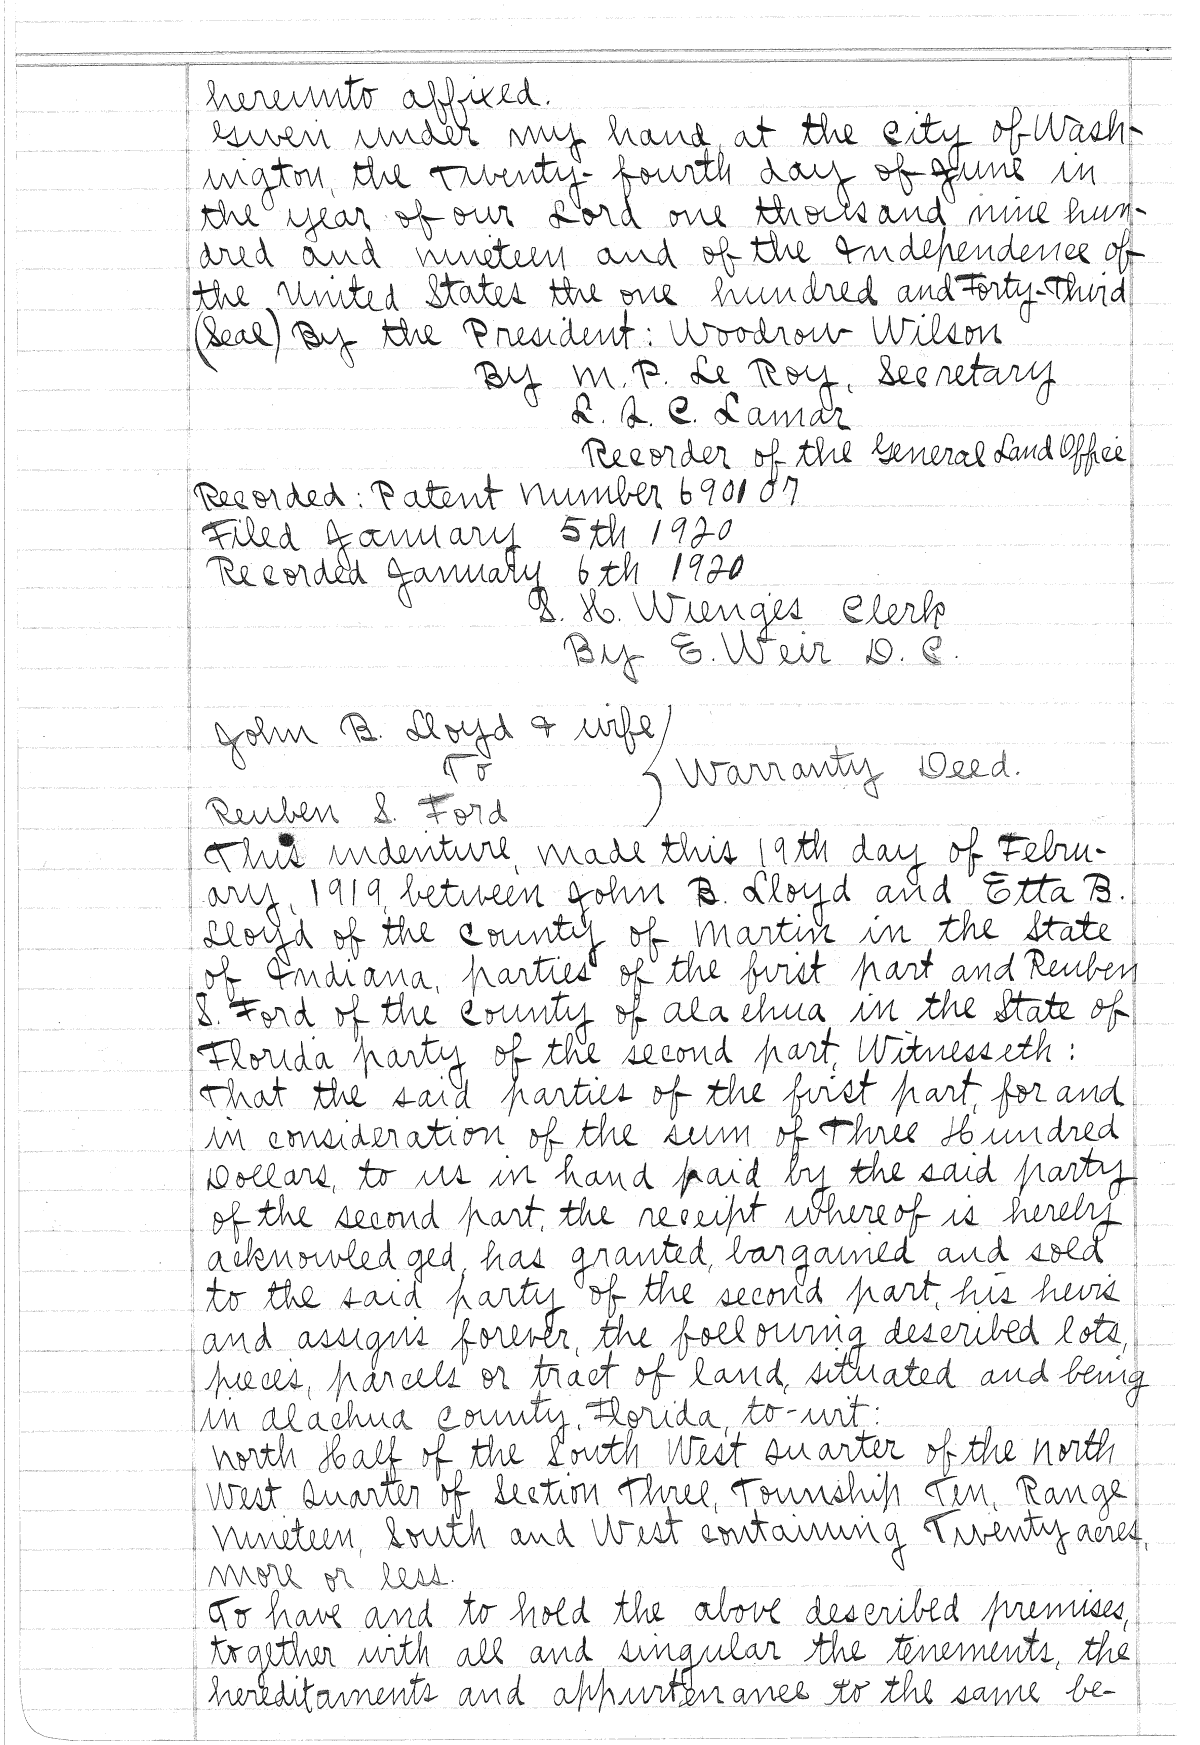 hereunto affixed.
Given under my hand, at the city of Wash-
ington, the Twenty-fourth day of June in
the year of our Lord one thousand nine hun-
dred and nineteen and of the Independence of
the United States the one hundred and Forty-Third
(Seal) By the President: Woodrow Wilson
By M. P. Le Roy, Secretary
L. Q. C. Lamar
Recorder of the General Land Office
Recorded: Patent Number 690107
Filed January 5th 1920
Recorded January 6th 1920
S. H. Wienges Clerk
By E. Weir D. C.
John B. Lloyd & wife
To
Warranty Deed.
Reuben S. Ford
This indenture, made this 19th day of Febru-
ary, 1919, between John B. Lloyd and Etta B.
Lloyd of the County of Martin in the State
of Indiana, parties of the first part and Reuben
S. Ford of the County of Alachua in the State of
Florida party of the second part, Witnesseth:
That the said parties of the first part, for and
in consideration of the sum of Three Hundred
Dollars, to us in hand paid by the said party
of the second part, the receipt whereof is hereby
acknowledged, has granted, bargained and sold
to the said party of the second part, his heirs
and assigns forever, the following described lots,
pieces, parcels or tract of land, situated and being
in Alachua County, Florida, to-wit:
North Half of the South West Quarter of the North
West Quarter of Section Three, Township Ten, Range
Nineteen, South and West containing Twenty acres,
more or less.
To have and to hold the above described premises,
together with all and singular the tenements, the
hereditaments and appurtenance to the same be-